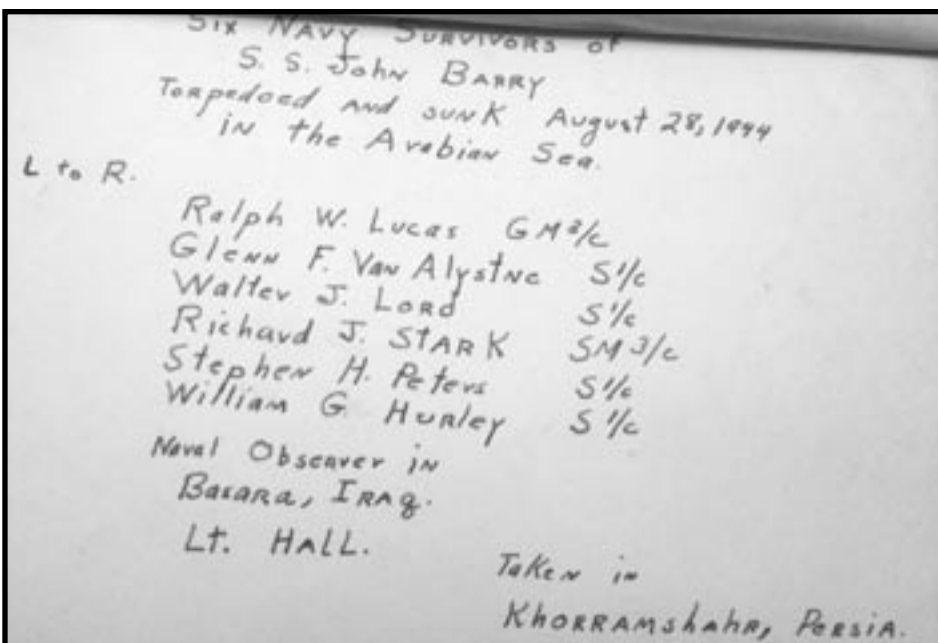 Six Navy Survivors of
S. S. John Barry
Torpedoed and sunk August 28, 1944
in the Arabian Sea.
L to R.
Ralph W. Lucas GM 3/c
Glenn F. Van Alystne S 1/c
Walter J. Lord S 1/c
Richard J. Stark SM 3/c
Stephen H. Peters S 1/c
William G Hurley S 1/c
Naval Observer in
Basara, Iraq.
Lt. Hall.
Taken in
Khorramshahr, Persia.